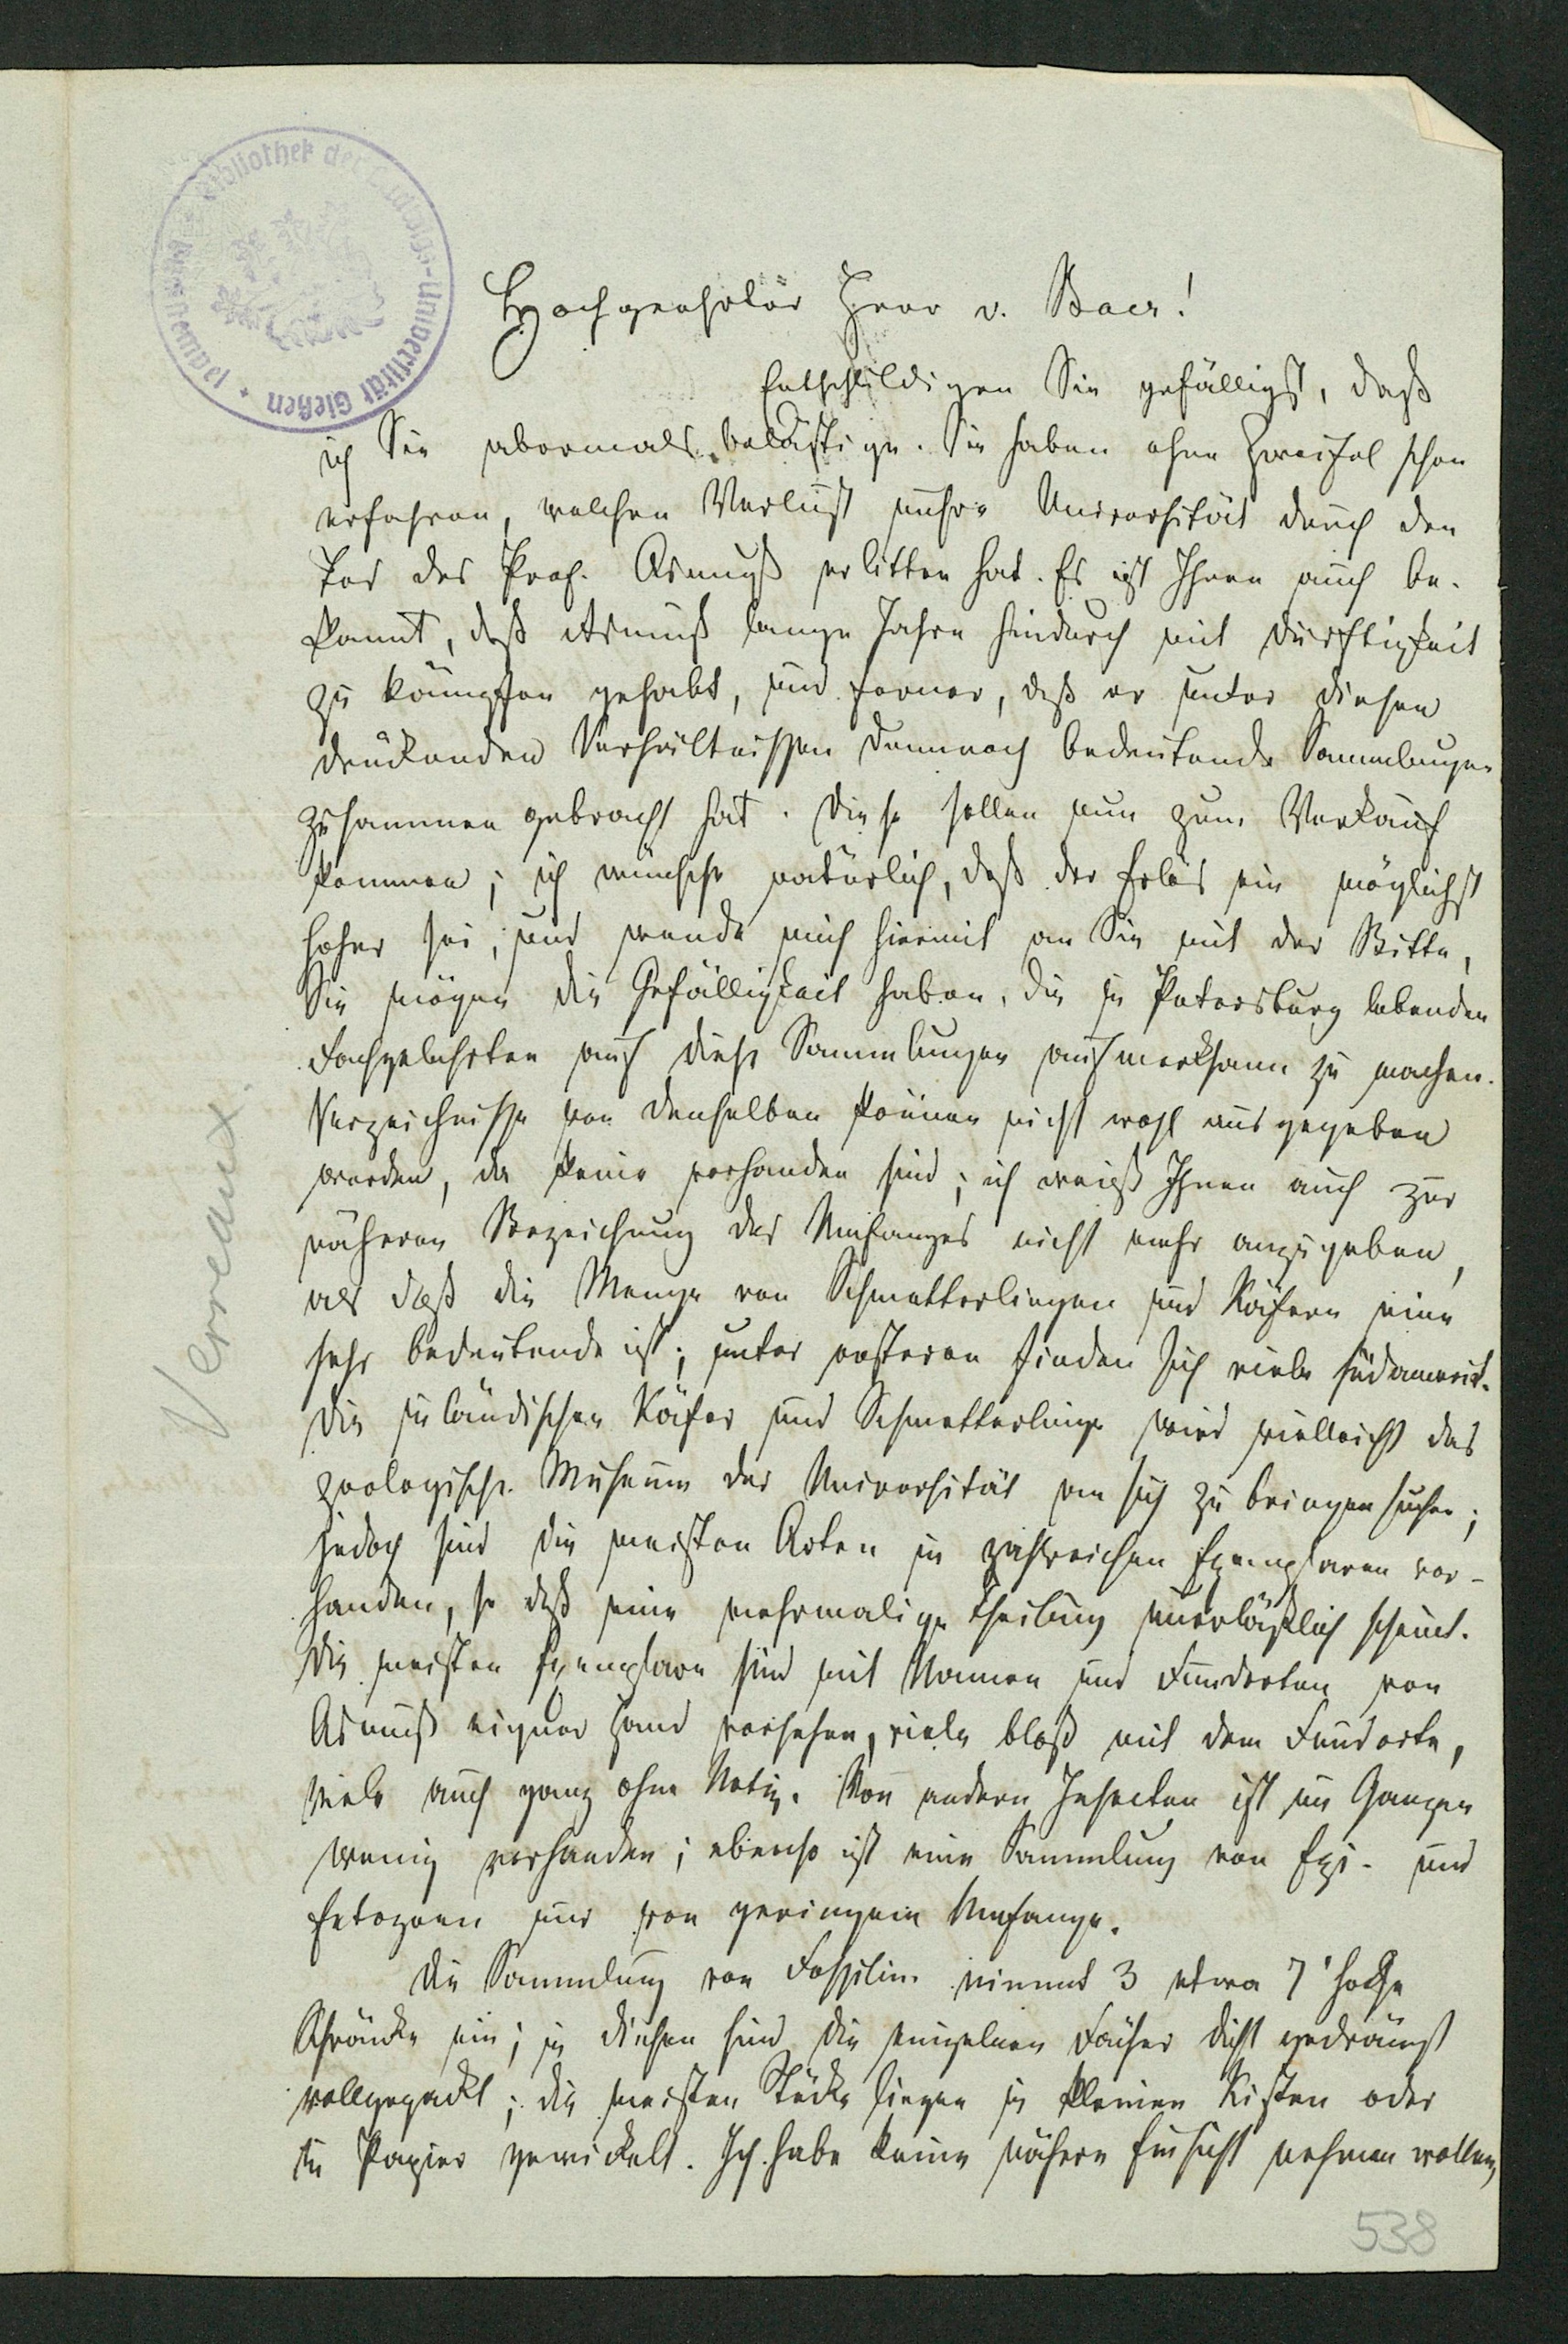 Bibliothek der Ludwigs-Universität Gießen
Hochgeehrter Herr v. Baer!
Entschuldigen Sie gefälligst, daß
ich Sie abermals belästige. Sie haben ohne Zweifel schon
erfahren, welchen Verlust unsre Universität durch den
Tod des Prof. Asmuß erlitten hat. Es ist Ihnen auch be-
kannt, daß Asmuß lange Jahre hindurch mit Dürftigkeit
zu kämpfen gehabt, und ferner, daß er unter diesen
drückenden Verhältnissen dennoch bedeutende Sammlungen
zusammen gebracht hat. Diese sollen nun zum Verkauf
kommen; ich wünsche natürlich, daß der Erlös ein möglichst
hoher sei, und wende mich hiermit an Sie mit der Bitte,
Sie mögen die Gefälligkeit haben, die in Petersburg lebenden
Fachgelehrten auf diese Sammlungen aufmerksam zu machen.
Verzeichnisse von denselben können nicht wohl ausgegeben
werden, da keine vorhanden sind; ich weiß Ihnen auch zur
näheren Bezeichnung des Umfanges nicht mehr anzugeben,
als daß die Menge von Schmetterlingen und Käfern eine
sehr bedeutende ist; unter ersteren finden sich viele südamerik.
Die inländischen Käfer und Schmetterlinge wird vielleicht das
zoologische Museum der Universität an sich zu bringen suchen;
jedoch sind die meisten Arten in zahlreichen Exemplaren vor-
handen, so daß eine mehrmalige Theilung unerläßlich scheint.
Die meisten Exemplare sind mit Namen und Fundorten von
Asmuß eigner Hand versehen, viele bloß mit dem Fundorte,
viele auch ganz ohne Notiz. Von andern Insecten ist im Ganzen
wenig vorhanden; ebenso ist eine Sammlung von Epi- und
Entozoen nur von geringem Umfange.
Die Sammlung von Fossilien nimmt 3 etwa 7' hohe
Schränke ein; in diesen sind die einzelnen Fächer dicht gedrängt
vollgepackt; die meisten Stücke liegen in kleinen Kisten oder
in Papier gewickelt. Ich habe keine nähere Einsicht nehmen wollen,
Verreaux
538